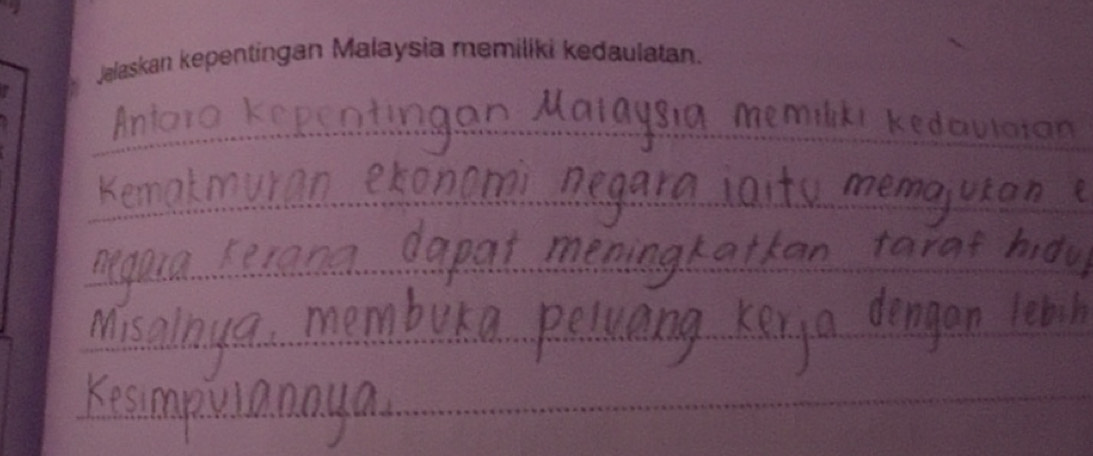 Jelaskan kepentingan Malaysia memiliki kedaulatan.
Antara kepentingan Malaysia memiliki kedaulatan
Kemakmuran ekonomi negara iaitu memajukan e
negara kerana dapat meningkatkan taraf hidup
Misalnya, membuka peluang kerja dengan lebih
Kesimpulannya,